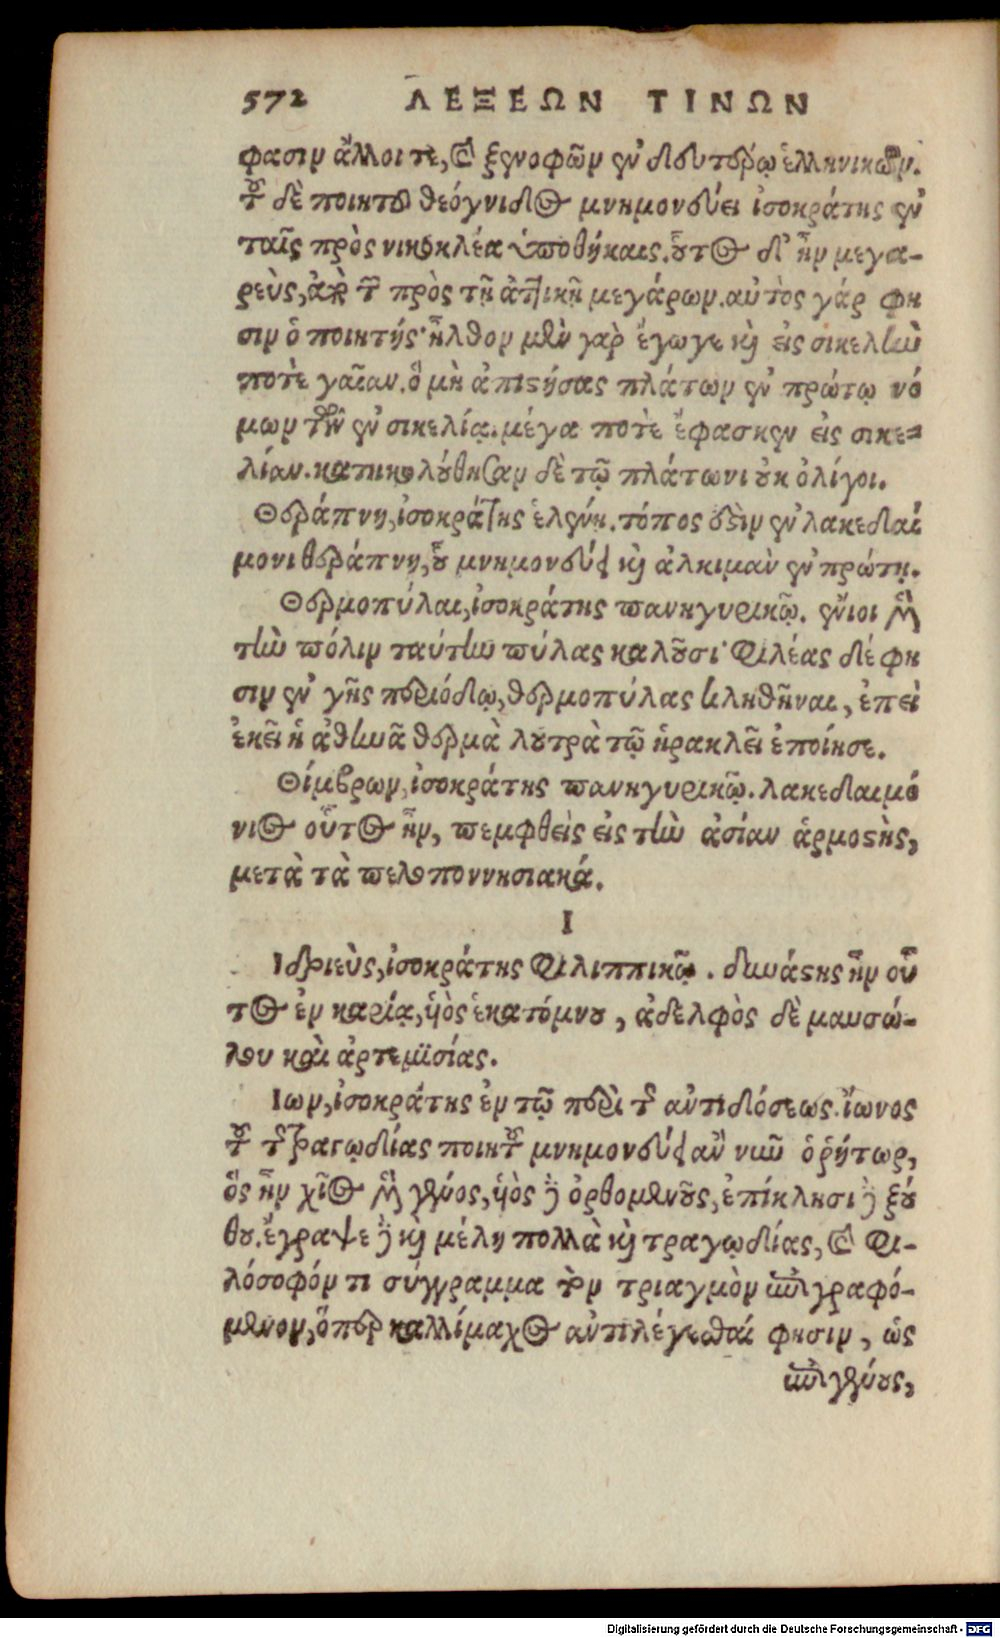 572 ΛΕΞΕΩΝ ΤΙΝΩΝ
φασιν ἄλλοι τε, καὶ ξενοφῶν ἐν δευτέρῳ ἑλληνικῶν.
τοῦ δὲ ποιητοῦ θεόγνιδος μνημονεύει ἰσοκράτης ἐν
ταῖς πρὸς νικοκλέα ὑποθήκαις. οὗτος δ' ἦν μεγα-
ρεὺς, ἀπὸ τῶν πρὸς τῇ ἀττικῇ μεγάρων. αὐτὸς γάρ φη
σιν ὁ ποιητής· ἦλθον μὲν γὰρ ἔγωγε καὶ εἰς σικελὴν
ποτὲ γαῖαν. ὃ μὴ ἀπιστήσας πλάτων ἐν πρώτῳ νό
μων τῶν ἐν σικελίᾳ. μέγα ποτὲ ἔφασκεν εἰς σικε-
λίαν. κατηκολούθησαν δὲ τῷ πλάτωνι οὐκ ὀλίγοι.
Θεράπνη, ἰσοκράτης ἑλένῃ. τόπος ἐστὶν ἐν λακεδαί
μονι θεράπνη, οὗ μνημονεύει καὶ ἀλκιμὰν ἐν πρώτῃ.
Θερμοπύλαι, ἰσοκράτης πανηγυρικῷ. ἔνιοι μὲν
τὴν πόλιν ταύτην πύλας καλοῦσι· φιλέας δέ φη
σιν ἐν γῆς περιόδῳ, θερμοπύλας κληθῆναι, ἐπεὶ
ἐκεῖ ἡ ἀθηνᾶ θερμὰ λουτρὰ τῷ ἡρακλεῖ ἐποίησε.
Θίμβρων, ἰσοκράτης πανηγυρικῷ. λακεδαιμό
νιος οὗτος ἦν, πεμφθεὶς εἰς τὴν ἀσίαν ἁρμοστὴς,
μετὰ τὰ πελοποννησιακά.
Ι
Ιδριεὺς, ἰσοκράτης φιλιππικῷ. δυνάστης ἦν οὗ
τος ἐν καρίᾳ, υἱὸς ἑκατόμνου, ἀδελφὸς δὲ μαυσώ-
λου καὶ ἀρτεμισίας.
Ιων, ἰσοκράτης ἐν τῷ περὶ τῆς αὐτιδόσεως. ἴωνος
τοῦ τῆς τραγῳδίας ποιητοῦ μνημονεύει ἂν νῦν ὁ ῥήτωρ,
ὃς ἦν χῖος μὲν γένος, υἱὸς δὲ ὀρθομένους, ἐπίκλησι δὲ ξού
θου. ἔγραψε δὲ καὶ μέλη πολλὰ καὶ τραγῳδίας, καὶ φι-
λόσοφόν τι σύγγραμμα τὸν τριαγμὸν ἐπιγραφό-
μενον, ὅπερ καλλίμαχος αὐτιλέγεσθαί φησιν, ὡς
ἐπιγένους,
Digitalisierung gefördert durch die Deutsche Forschungsgemeinschaft - DFG